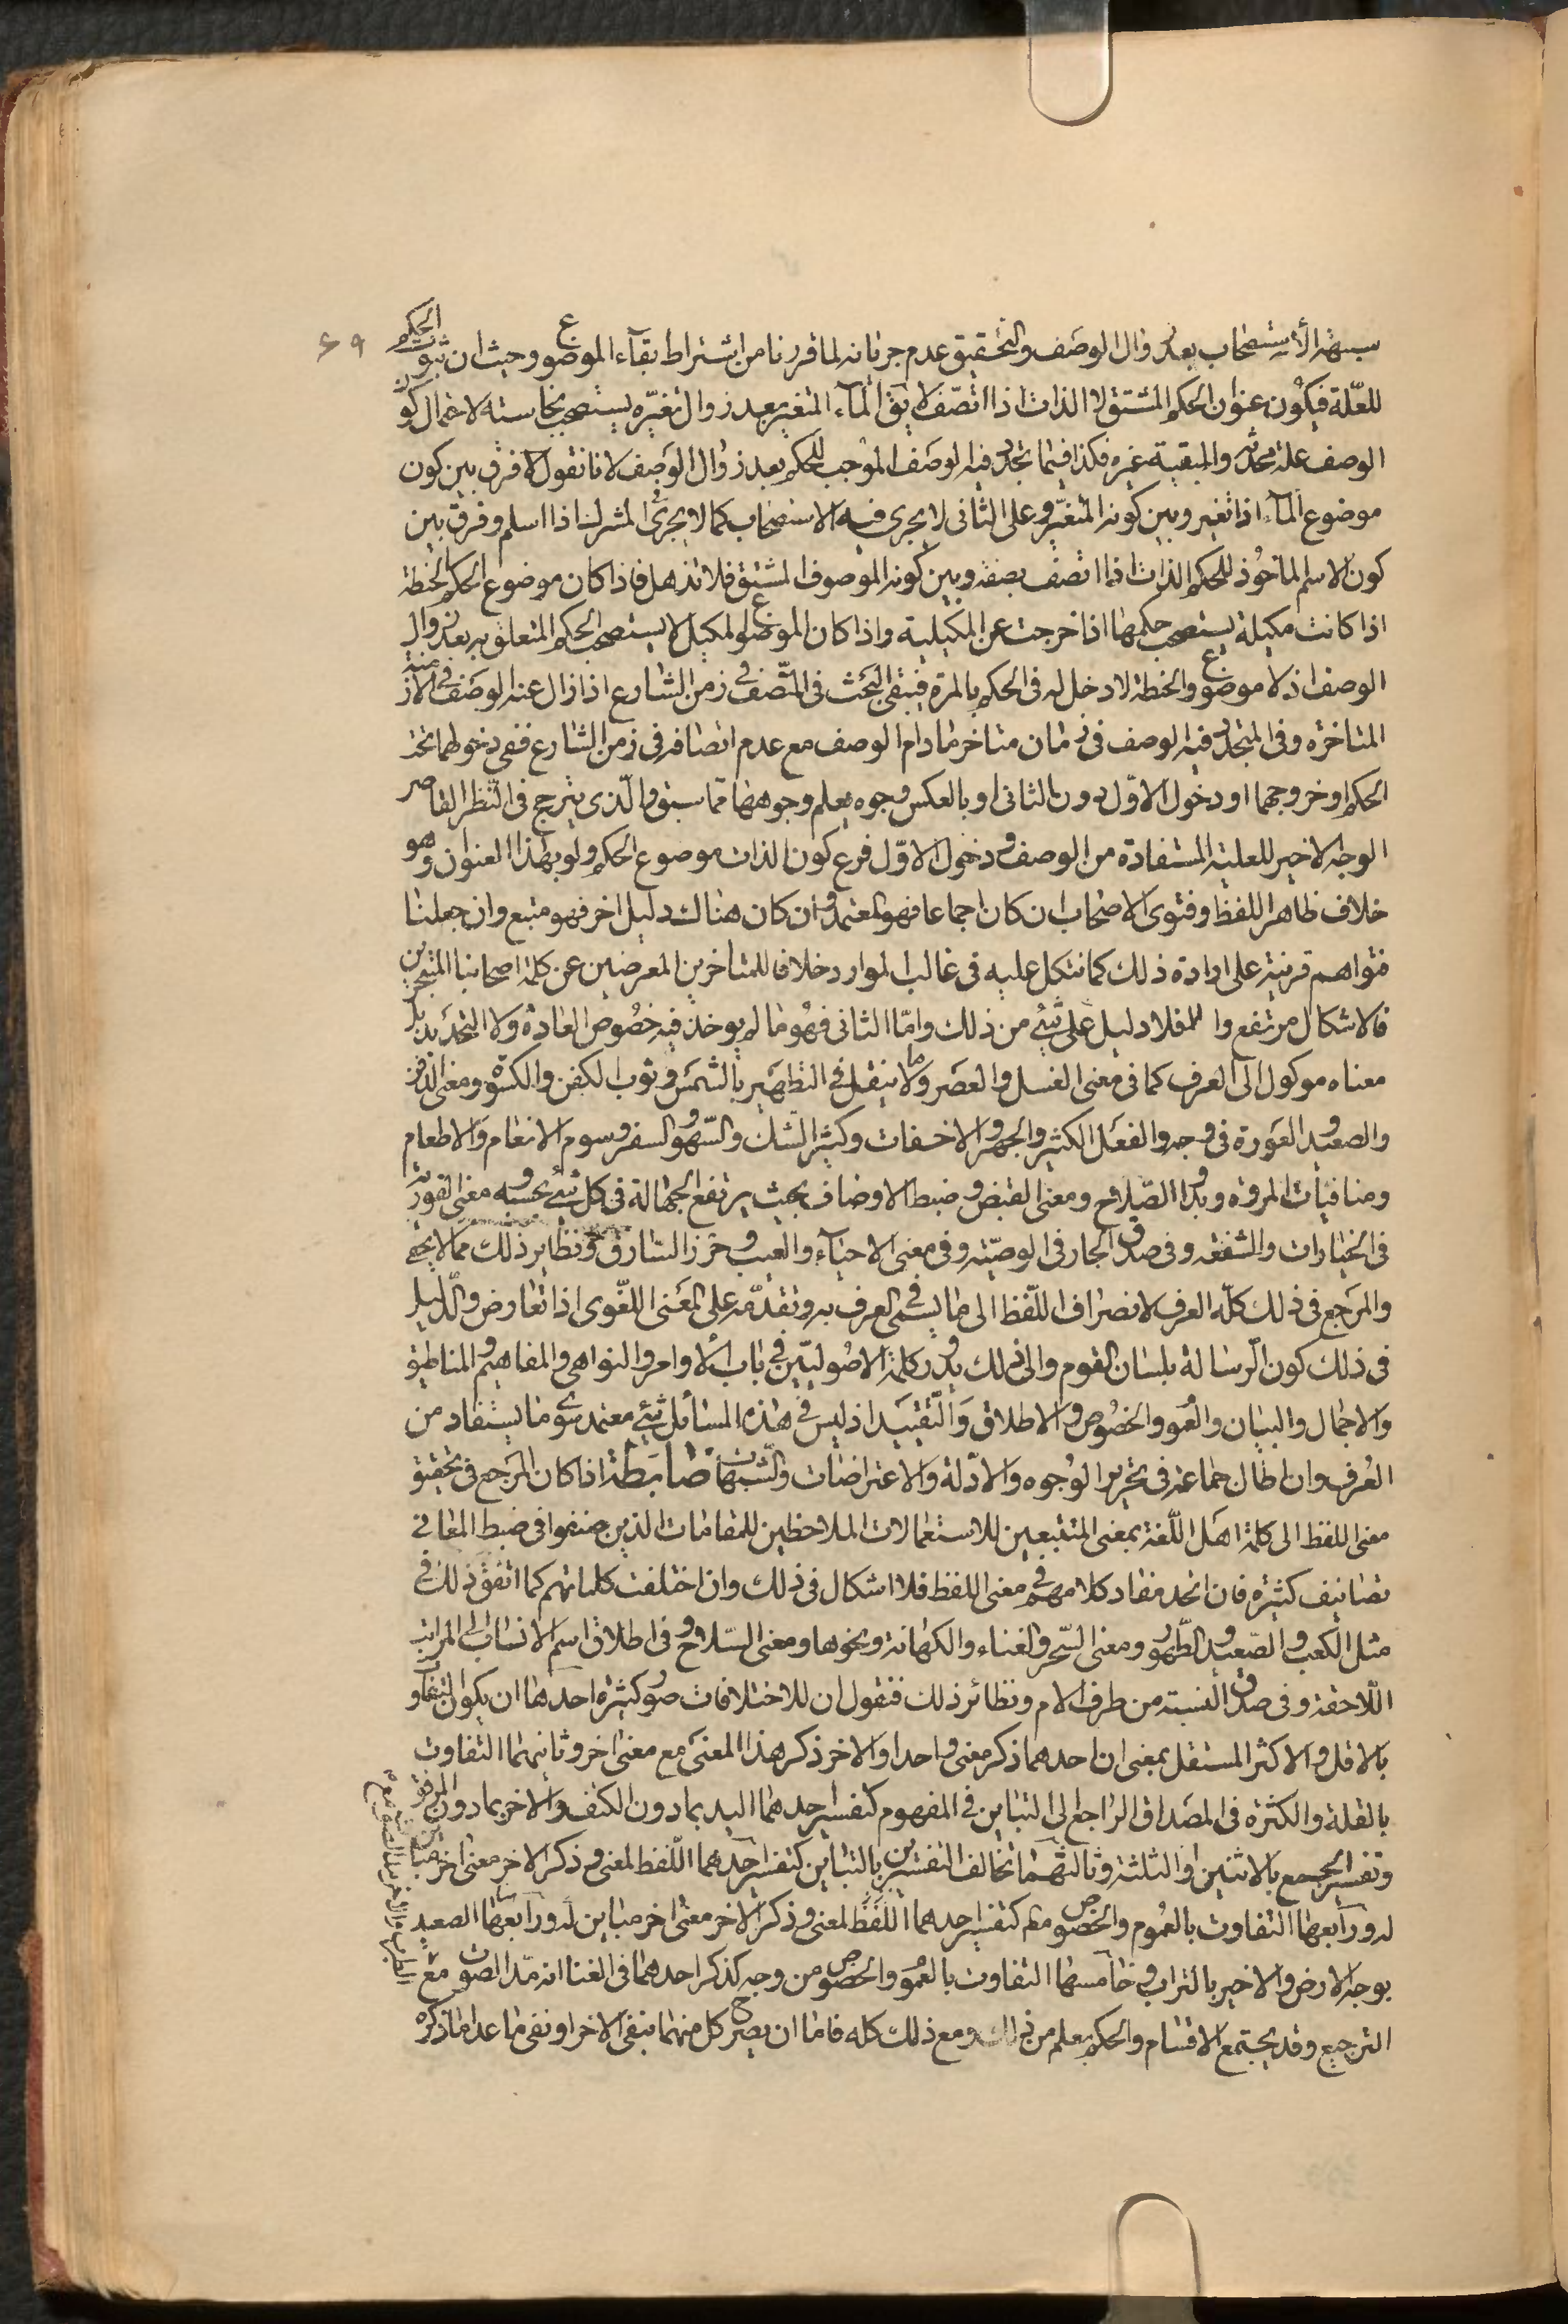 سبهة الاستصحاب بعد زوال الوصف والتحقيق عدم جريانه لما قررنا من اشتراط بقاء الموضوع وحيث ان ثبوت الحكم
٦٩
للعلّة فيكون عنوان الحكم المشتق لا الذات اذا اتصف لا يق الماء المتغير بعد زوال تغيّره يستصحب نجاسته لاحتمال كون
الوصف علة محدثة والمبقية غيره فكذا فيما تجدد فيه الوصف الموجب للحكم بعد زوال الوصف لانا نقول لا فرق بين كون
موضوع الماء اذا تغير وبين كونه المتغيّر وعلى الثاني لا يجرى فيه الاستصحاب كما لا يجرى المشرك اذا اسلم وفرق بين
كون الاسم الماخوذ للحكم الذات اذا اتصف بصفة وبين كونه الموصوف المشتق فلا تذهل فاذا كان موضوع الحكم الحنطة
اذا كانت مكيلة يستصحب حكمها اذا خرجت عن المكيلية واذا كان الموضوع المكيل لا يستصحب الحكم المتعلق به بعد زوال
الوصف اذ لا موضوع والحنطة لا دخل له فى الحكم بالمرة فيبقى البحث فى المتّصف فى زمن الشارع اذا زال عنه الوصف فى الازمنة
المتاخرة وفى المتجدد فيه الوصف فى زمان متاخر مادام الوصف مع عدم اتصافه فى زمن الشارع ففى دخولهما تحت
الحكم او خروجهما او دخول الاوّل دون الثانى او بالعكس وجوه يعلم وجوهها مما سبق والّذى يترجح فى النظر القاصر
الوجه الاخير للعلية المستفادة من الوصف ودخول الاوّل فرع كون الذات موضوع الحكم ولو بهذا العنوان وهو
خلاف ظاهر اللفظ وفتوى الاصحاب ان كان اجماعا فهو المعتمد وان كان هناك دليل اخر فهو متبع وان جعلنا
فتواهم قرينة على ارادة ذلك كما نتكل عليه فى غالب الموارد خلافا للمتأخرين المعرضين عن كلمة اصحابنا المتبحرين
فالاشكال مرتفع والا فلا دليل على شئ من ذلك وامّا الثانى فهو ما لم يوخذ فيه خصوص العادة ولا التحديد بل
معناه موكول الى العرف كما فى معنى الغسل والعصر وما لا ينقل فى التطهير بالشمس وثوب الكفن والكسوة ومعنى الدفن
والصعيد والعورة فى وجه والفعل الكثير والجهر والاخفات وكثير الشك والسّهو والسفر وسوم الانعام والاطعام
ومنافيات المروة وبدو الصّلاح ومعنى القبض وضبط الاوصاف بحيث يرتفع الجهالة فى كل شئ بحسبه ومعنى الفورية
فى الخيارات والشفعة وفى صدق الجار فى الوصيّة وفى معنى الاحياء والعيب وحرز السّارق ونظاير ذلك مما لا يحصى
والمرجع فى ذلك كلّه العرف لانصراف اللّفظ الى ما يسمى فى العرف به وتقدّمه على المعنى اللغوى اذا تعارض والدّليل
فى ذلك كون الرّسالة بلسان القوم والى ذلك يدور كلمة الاصوليّين فى باب الأوامر والنواهى والمفاهيم والمناطيق
والاجمال والبيان والعموم والخصوص والاطلاق والتّقييد اذ ليس فى هذه المسائل شئ معتمد سوى ما يستفاد من
العُرف وان اطال جماعة فى تحرير الوجوه والادّلة والاعتراضات والشّبهات ضابطة اذا كان المرجع فى تحقيق
معنى اللفظ الى كلمة اهل اللّغة بمعنى المتتبعين للاستعمالات الملاحظين للمقامات الذين صنفوا فى ضبط المعانى
تصانيف كثيرة فان اتحد مفاد كلامهم فى معنى اللفظ فلا اشكال فى ذلك وان اختلفت كلماتهم كما اتفق ذلك فى
مثل الكعب والصّعيد والطّهور ومعنى السّحر والغناء والكهانة ونحوها ومعنى السّلاح وفى اطلاق اسم الانساب الى المراتب
اللّاحقة وفى صدق النسبة من طرف الام ونظائر ذلك فنقول ان للاختلافات صور كثيرة احدهما ان يكون التفاوت
بالاقل والاكثر المستقل بمعنى ان احدهما ذكر معنى واحدا والاخر ذكر هذا المعنى مع معنى اخر وثانيهما التفاوت
بالقلة والكثرة فى المصداق الراجع الى التباين فى المفهوم كتفسير احدهما اليد بمادون الكتف والاخر بمادون المرفق
وتفسير الجمع بالاثنين او الثلثة وثالثهما تخالف التفسيرين بالتباين كتفسير احدهما اللّفظ لمعنى وذكر الاخر معنى اخر مباين
له ورابعها التفاوت بالعموم والخصوص مط كتفسير احدهما اللّفظ لمعنى وذكر الاخر معنى اخر مباين له ورابعها الصعيد
بوجه الارض والاخير بالتراب وخامسها التفاوت بالعموم والخصوص من وجه كذكر احدهما فى الغنا انه مدّ الصوت مع
الترجيع وقد يجتمع الاقسام والحكم يعلم من ذلك ومع ذلك كله فاما ان يصرح كل منهما بنفى الاخر او نفى ما عدا ما ذكره